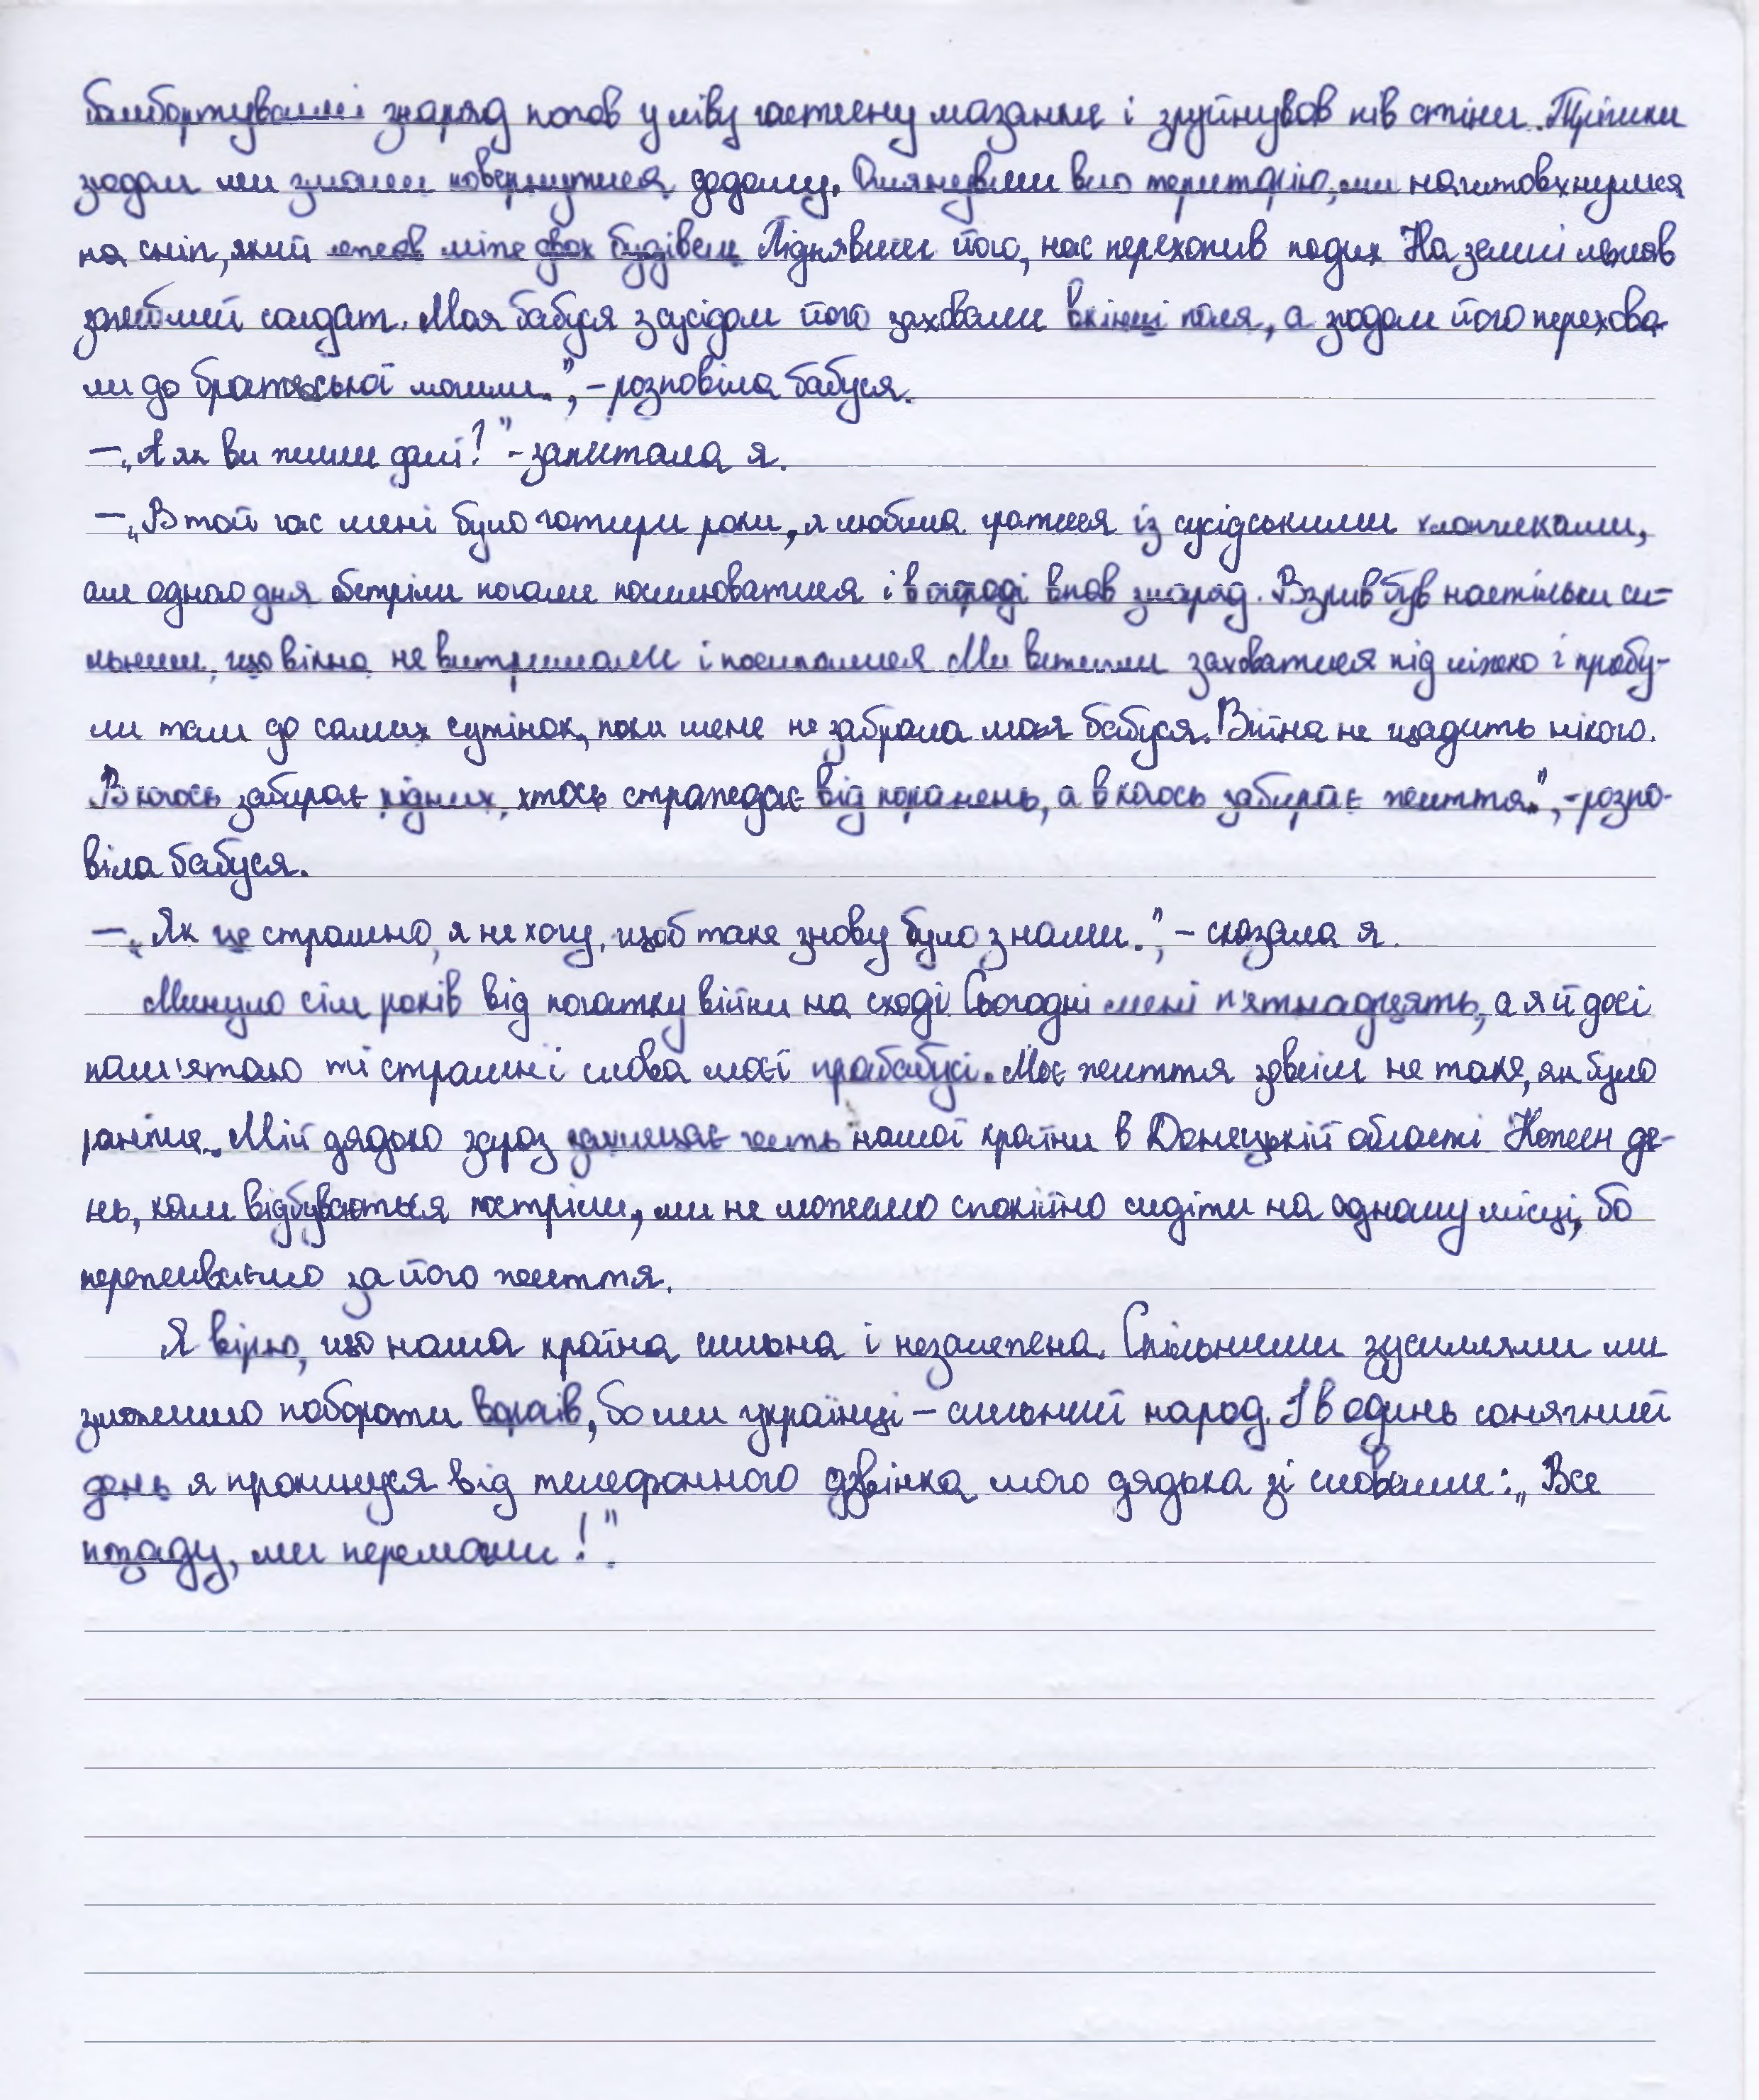 бомбордтуванні знаряд попав у ліву частину мазанки і зруйнував пів стіни. Трішки
згодом ми змогли повернутися додому. Оглянувши всю територію, ми наштовхнулися
на сніп, який лежав між двох будівель Піднявши його, нас перехопив подих На землі лежав
загиблий солдат. Моя бабуся з сусідом його заховали в кінці поля, а згодом його перехова-
ли до братської могили.", – розповіла бабуся.
– „А як ви жили далі?" – запитала я.
– „В той час мені було чотири роки, я любила гратися із сусідськими хлопчиками,
але одного дня обстріли почали посилюватися і в городі впав знаряд. Взрив був настільки си-
льним, що вікна не витримали і посипалися Ми встигли заховатися під ліжко і пробу-
ли там до самих сутінок, поки мене не забрала моя бабуся. Війна не щадить нікого.
В когось забирає рідних, хтось страждає від поранень, а в когось забирає життя.", – розпо-
віла бабуся.
– „Як це страшно, я не хочу, щоб таке знову було з нами.", – сказала я.
Минуло сім років від початку війни на сході. Сьогодні мені п'ятнадцять, а я й досі
пам'ятаю ті страшні слова моєї прабабусі. Моє життя зовсім не таке, як було
раніше. Мій дядько зараз захищає честь нашої країни в Донецькій області Кожен де-
нь, коли відбуваються постріли, ми не можемо спокійно сидіти на одному місці, бо
переживаємо за його життя.
Я вірю, що наша країна сильна і незалежна. Спільними зусиллями ми
зможемо побороти ворогів, бо ми українці – сильний народ. І в одинь сонячний
день я прокинуся від телефонного дзвінка мого дядька зі словами: „Все
позаду, ми перемогли!".